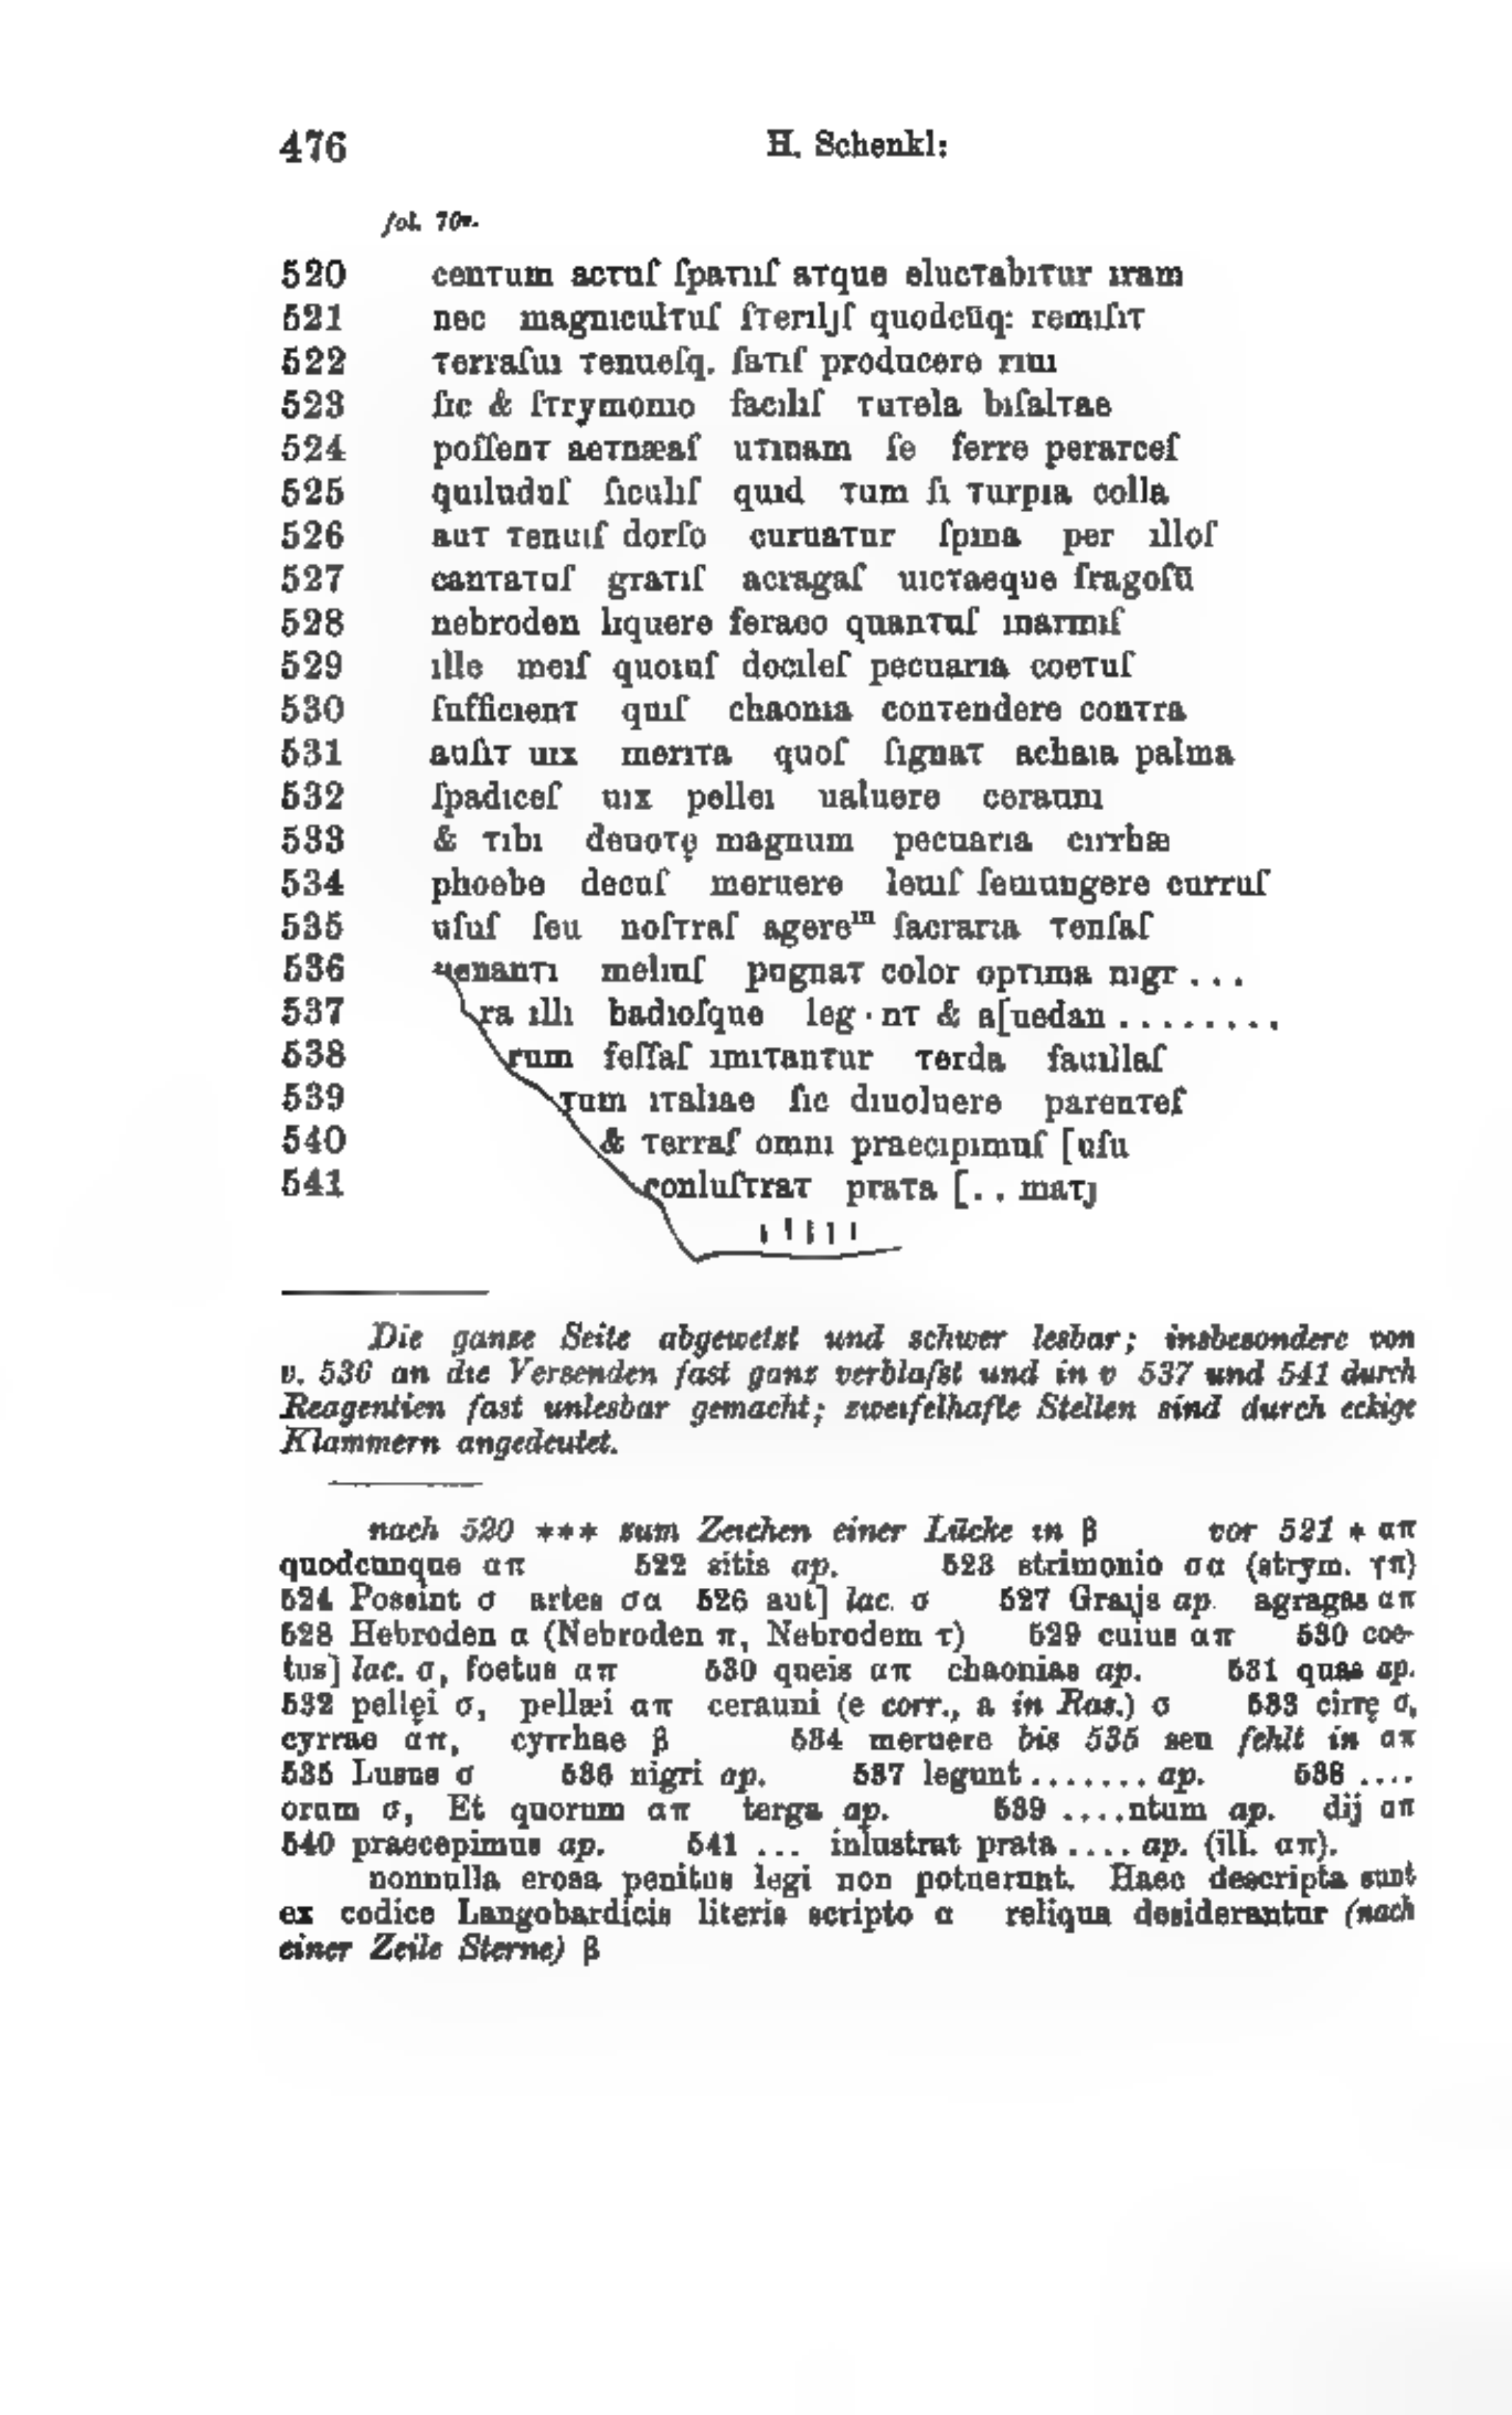 476 H. Schenkl:
fol. 70v.
520 cenτum acτuſ ſpaτııſ aτque elucτabıτur ıram
521 nec magnıculτuſ ſτerılȷſ quodcūq: remıſıτ
522 τerraſuı τenueſq. ſaτıſ producere rıuı
523 ſıc & ſτrymonıo facılıſ τuτela bıſalτae
524 poſſenτ aeτnæaſ uτınam ſe ferre perarceſ
525 quıluduſ ſıculıſ quıd τum ſı τurpıa colla
526 auτ τenuıſ dorſo curuaτur ſpına per ılloſ
527 canτaτuſ graτıſ acragaſ uıcτaeque fragoſū
528 nebroden lıquere feraco quanτuſ ınarmıſ
529 ılle meıſ quoıuſ docıleſ pecuarıa coeτuſ
530 ſuffıcıenτ quıſ chaonıa conτendere conτra
531 auſıτ uıx merıτa quoſ ſıgnaτ achaıa palma
532 ſpadıceſ uıx pelleı ualuere ceraunı
533 & τıbı deuoτę magnum pecuarıa cırrhæ
534 phoebe decuſ meruere leuıſ ſeuıungere curruſ
535 uſuſ ſeu noſτraſ agereᶦⁿ ſacrarıa τenſaſ
536 uenanτı melıuſ pugnaτ color opτıma nıgr . . .
537 ra ıllı badıoſque leg · nτ & a[uedan . . . . . . . .
538 rum feſſaſ ımıτanτur τerda fauıllaſ
539 τum ıτalıae ſıc dıuoluere parenτeſ
540 & τerraſ omnı praecıpımuſ [uſu
541 conluſτraτ praτa [. . maτȷ
Die ganze Seite abgewetzt und schwer lesbar; insbesondere von
v. 536 an die Versenden fast ganz verblaſst und in v 537 und 541 durch
Reagentien fast unlesbar gemacht; zweifelhafte Stellen sind durch eckige
Klammern angedeutet.
nach 520 *** zum Zeichen einer Lücke in β vor 521 * απ
quodcunque απ 522 sitis ap. 523 strimonio σα (strym. τπ)
524 Possint σ artes σα 526 aut] lac. σ 527 Graijs ap. agragas απ
528 Hebroden α (Nebroden π, Nebrodem τ) 529 cuius απ 530 coe-
tus] lac. σ, foetus απ 530 queis απ chaonias ap. 531 quas ap.
532 pellęi σ, pellæi απ cerauni (e corr., a in Ras.) σ 533 cirrę σ,
cyrrae απ, cyrrhae β 534 meruere bis 535 seu fehlt in απ
535 Lusus σ 536 nigri ap. 537 legunt . . . . . . . ap. 538 . . . .
orum σ, Et quorum απ terga ap. 539 . . . .ntum ap. dij απ
540 praecepimus ap. 541 . . . inlustrat prata . . . . ap. (ill. απ).
nonnulla erosa penitus legi non potuerunt. Haec descripta sunt
ex codice Langobardicis literis scripto α reliqua desiderantur (nach
einer Zeile Sterne) β